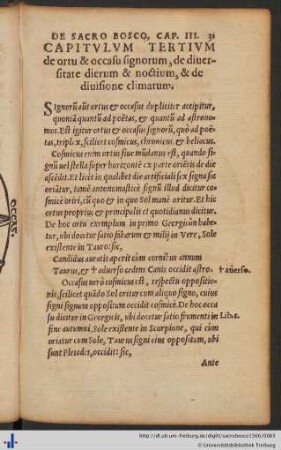 DE SACRO BOSCO, CAP. III. 31
CAPITVLVM TERTIVM
de ortu & occasu signorum, de diuer-
sitate dierum & noctium, & de
diuisione climatum.
SIgnorũ aũt ortus & occasus dupliciter accipitur,
quoniã quantũ ad poëtas, & quantũ ad astrono-
mos. Est igitur ortus & occasus signorũ, quo ad poë-
tas, triplex, scilicet cosmicus, chronicus, & heliacus.
Cosmicus enim ortus siue mũdanus est, quando si-
gnũ vel stella super horizontẽ ex parte oriẽtis de die
ascẽdit. Et licèt in qualibet die artificiali sex signa sic
oriãtur, tamẽ antonomasticè signũ illud dicitur co-
smicè oriri, cũ quo & in quo Sol manè oritur. Et hic
ortus proprius & principalis et quotidianus dicitur.
De hoc ortu exemplum in primo Georgicôn habe-
tur, vbi docetur satio fabarum & milij in Vere, Sole
existente in Tauro: sic,
Candidus auratis aperit cùm cornibus annum
Taurus, & † aduerso cedens Canis occidit astro. † auerso.
Occasus verò cosmicus est, respectu oppositio-
nis, scilicet quãdo Sol oritur cum aliquo signo, cuius
signi signum oppositum occidit cosmicè. De hoc occa
su dicitur in Georgicis, vbi docetur satio frumenti in Lib. 1.
fine autumni, Sole existente in Scorpione, qui cùm
oriatur cum Sole, Taurus signũ eius oppositum, vbi
sunt Pleiades, occidit: sic,
Ante
http://dl.ub.uni-freiburg.de/diglit/sacrobosco1566/0063
© Universitätsbibliothek Freiburg